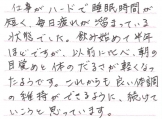 仕事がハードで睡眠時間が
短く、毎日疲れが溜まっている
状態でした。飲み始めて半年
ほどですが、以前に比べ、朝の
目覚めと体のだるさが軽くなっ
たようです。これからも良い体調
の維持ができるように、続けて
いこうと思っています。